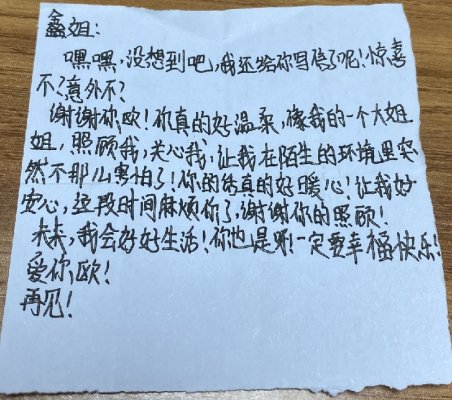 鑫姐:
嘿嘿,没想到吧,我还给你写信了呢!惊喜
不?意外不?
谢谢你欧!你真的好温柔,像我的一个大姐
姐,照顾我,关心我,让我在陌生的环境里突
然不那么害怕了!你的信真的好暖心!让我好
安心,这段时间麻烦你了,谢谢你的照顾!
未来,我会好好生活!你也是啊!一定要幸福快乐!
爱你欧!
再见!